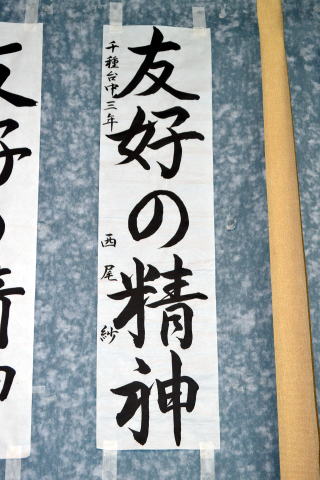 友好の精神
千種台中三年
西尾紗
友好の精神